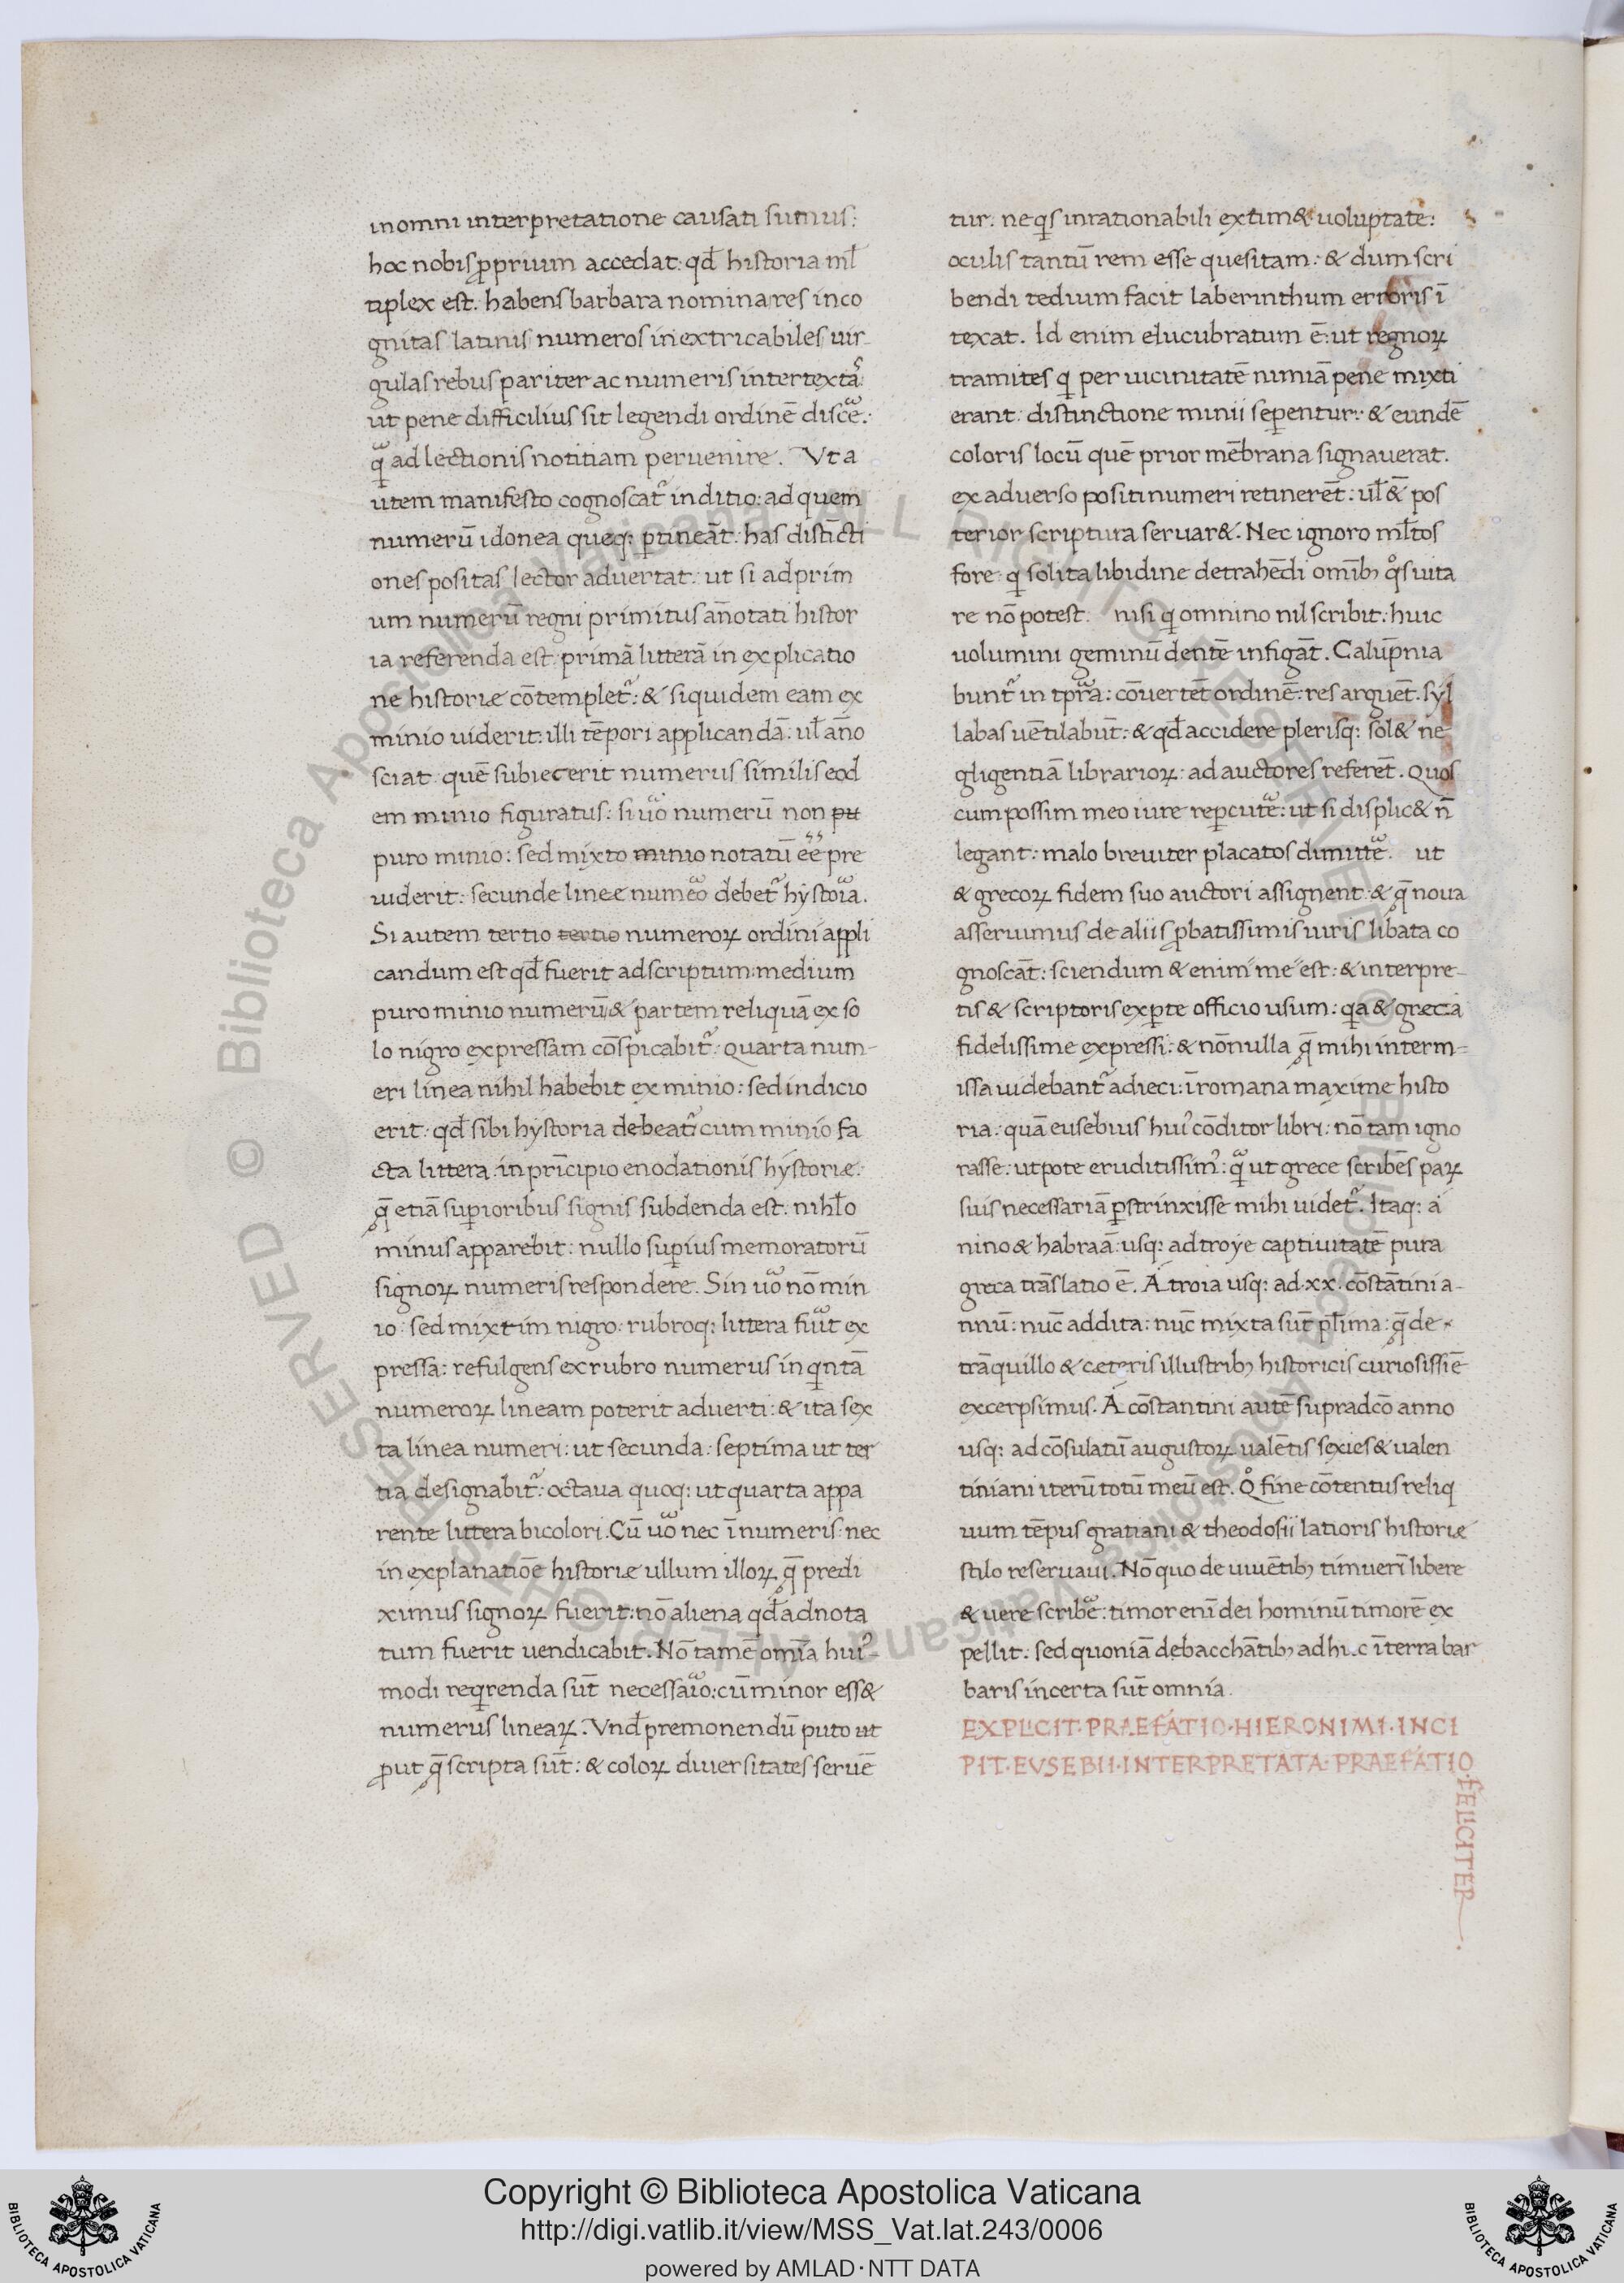 inomni interpretatione causati sumus:
hoc nobis ꝓprium accedat: qđ historia mł
tiplex est. habens barbara nomina res inco
gnitas latinis numeros inextricabiles uir-
gulas rebus pariter ac numeris intertextaˢ:
ut pene difficilius sit legendi ordinē discē:
q̄ ad lectionis notitiam peruenire. Vt a
utem manifesto cognoscat᷑ inditio: ad quem
numerū idonea queq: ꝑtineāt: has distīcti
ones positas lector aduertat: ut si ad prim
um numerū regni primitus ān̄otati histor
ia referenda est: primā litterā in explicatio
ne historiæ cōtemplet᷑: & siquidem eam ex
minio uiderit: illi tēpori applicandā: uł año
sciat quē subiecerit numerus similis eod
em minio figuratus: si uo numerū non pu
puro minio: sed mixto minio notatū ēē pre
uiderit: secunde lineę numeo debet᷑ hystoia.
Si autem tertio tertio numeroꝝ ordini appli
candum est qđ fuerit adscriptum: medium
puro minio numerū & partem reliquā ex so
lo nigro expressam cōspicabit᷑: quarta num-
eri linea nihil habebit ex minio: sed indicio
erit: qđ sibi hystoria debeat᷑ cum minio fa
cta littera in prīcipio enodationis hystoriæ:
q̄ etiā suꝑioribus signis subdenda est. nihło
minus apparebit: nullo suꝑius memoratorū
signoꝝ numeris respondere. Sin uo nō min
io: sed mixtim nigro: rubroq: littera fuit ex
pressa: refulgens ex rubro numerus in qntā
numeroꝝ lineam poterit aduerti: & ita sex
ta linea numeri: ut secunda: septima ut ter
tia designabit᷑: octaua quoq: ut quarta appa
rente littera bicolori. Cū uo nec ī numeris: nec
in explanatiōe historiæ ullum illoꝝ q̄ predi
ximus signoꝝ fuerit: nō aliena qđ adnota
tum fuerit uendicabit. Nō tamē omīa huiꝰ-
modi reqrenda sūt necessaio: cū minor ess&
numerus lineaꝝ. Vnđ premonendū puto ut
ꝓut q̄ scripta sūt: & coloꝝ diuersitates seruē
tur: ne qs inrationabili extim& uoluptate:
oculis tantū rem esse quesitam: & dum scri
bendi tedium facit laberinthum erroris ī
texat. Id enim elucubratum ē: ut regnoꝝ
tramites q per uicinitatē nimiā pene mixti
erant: distinctione minii seꝑentur: & eundē
coloris locū quē prior mēbrana signauerat.
ex aduerso positi numeri retinerēt: uł & pos
terior scriptura seruar&. Nec ignoro młtos
fore: q solita libidine detrahēdi omībꝫ qͦs uita
re nō potest. nisi q omnino nil scribit: huic
uolumini geminū dentē infigāt. Calūpnia
bunt᷑ in tꝑa: cōuertēt ordinē: res arguēt. syl
labas uētilabūt: & qđ accidere plerisq: sol& ne
gligentiā librarioꝝ: ad auctores referēt. Quos
cum possim meo iure reꝑcute: ut si displic& ñ
legant: malo breuiter placatos dimite. ut
& grecoꝝ fidem suo auctori assignent: & q̄ noua
asseruimus de aliis ꝓbatissimis uiris libata co
gnoscāt: sciendum & enim me est: & interpre-
tis & scriptoris ex ꝑte officio usum: qa & greca
fidelissime expressi: & nōnulla q̄ mihi interm-
issa uidebant᷑ adieci: ī romana maxime histo
ria: quā eusebius huiꝰ cōditor libri: nō tam igno
rasse: utpote eruditissimꝰ: q̄ ut grece scribēs paꝝ
suis necessariā ꝑstrinxisse mihi uidet᷑. Itaq: a
nino & habraā: usq: ad troye captiuitatē pura
greca trāslatio ē. A troia usq: ad .xx. cōstātini a-
nnū: nūc addita: nūc mixta sūt płima: q̄ de
trāquillo & ceteris illustribꝫ historicis curiosissīe
excerpsimus. A cōstantini autē supradcō anno
usq: ad cōsulatū augustoꝝ ualētis sexies & ualen
tiniani iterū totū meū est. Qͦ fine cōtentus reliq
uum tēpus gratiani & theodosii latioris historiæ
stilo reseruaui. Nō quo de uiuētibꝫ timuerī libere
& uere scribe: timor enī dei hominū timorē ex
pellit: sed quoniā debacchātibꝫ adhuc ī terra bar
baris incerta sūt omnia.
EXPLICIT·PRAEFATIO·HIERONIMI·INCI
PIT·EVSEBII·INTERPRETATA·PRAEFATIO
FELICITER
Copyright © Biblioteca Apostolica Vaticana
http://digi.vatlib.it/view/MSS_Vat.lat.243/0006
powered by AMLAD·NTT DATA
BIBLIOTECA APOSTOLICA VATICANA
BIBLIOTECA APOSTOLICA VATICANA
© Biblioteca Apostolica Vaticana ALL RIGHTS RESERVED
© Biblioteca Apostolica Vaticana ALL RIGHTS RESERVED